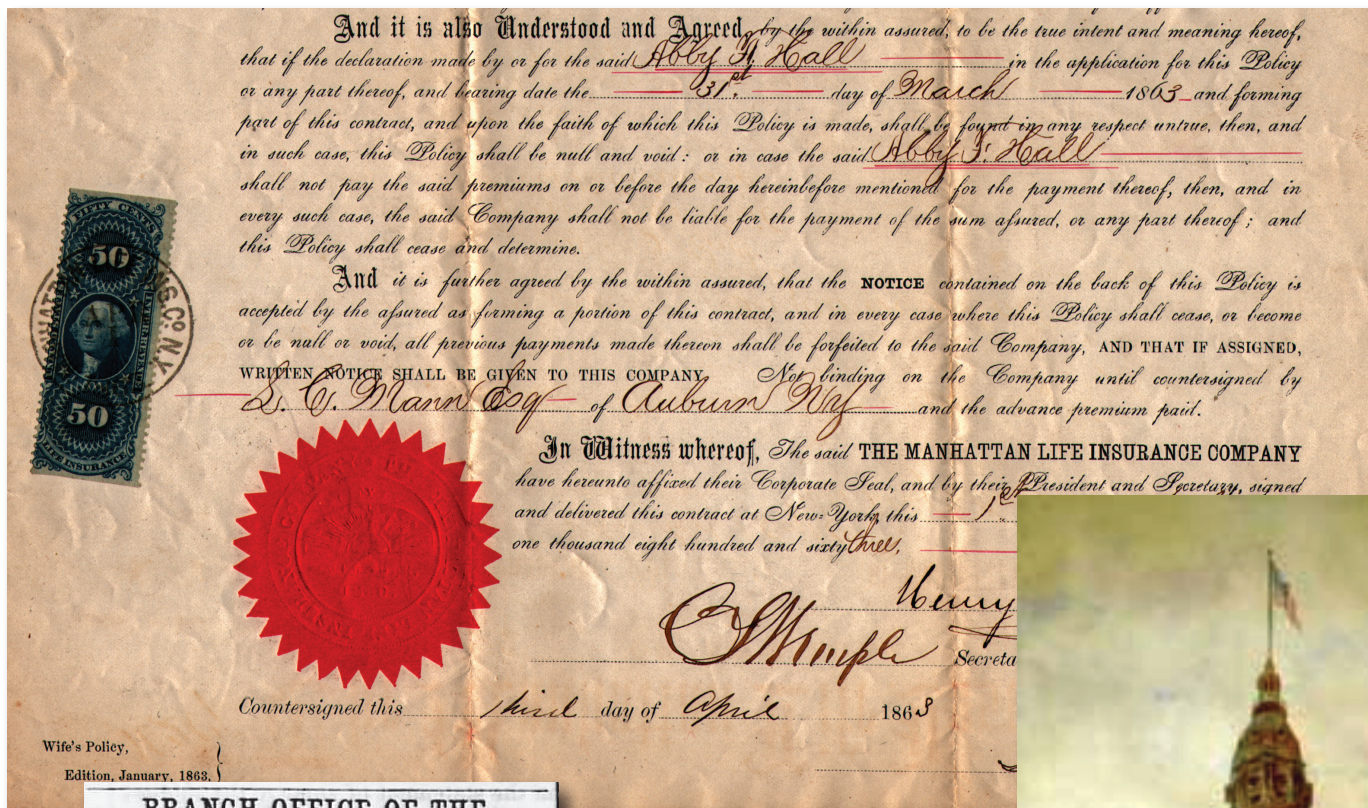 And it is also Understood and Agreed, by the within assured, to be the true intent and meaning hereof,
that if the declaration made by or for the said Abby F. Hall in the application for this Policy
or any part thereof, and bearing date the 31st. day of March 1863 and forming
part of this contract, and upon the faith of which this Policy is made, shall be found in any respect untrue, then, and
in such case, this Policy shall be null and void: or in case the said Abby F. Hall
shall not pay the said premiums on or before the day hereinbefore mentioned for the payment thereof, then, and in
every such case, the said Company shall not be liable for the payment of the sum aſsured, or any part thereof; and
this Policy shall cease and determine.
And it is further agreed by the within assured, that the NOTICE contained on the back of this Policy is
accepted by the aſsured as forming a portion of this contract, and in every case where this Policy shall cease, or become
or be null or void, all previous payments made thereon shall be forfeited to the said Company, AND THAT IF ASSIGNED,
WRITTEN NOTICE SHALL BE GIVEN TO THIS COMPANY. Not binding on the Company until countersigned by
L. C. Mann Esq of Auburn NY and the advance premium paid.
FIFTY CENTS
50
INTER. REVENUE
CO. N.Y.
50
LIFE INSURANCE
In Witness whereof, The said THE MANHATTAN LIFE INSURANCE COMPANY
have hereunto affixed their Corporate Seal, and by their President and Secretary, signed
and delivered this contract at New-York, this 1st
one thousand eight hundred and sixty three,
Henry
Secreta
Countersigned this third day of April 1863
Wife's Policy,
Edition, January, 1863.
BRANCH OFFICE OF THE